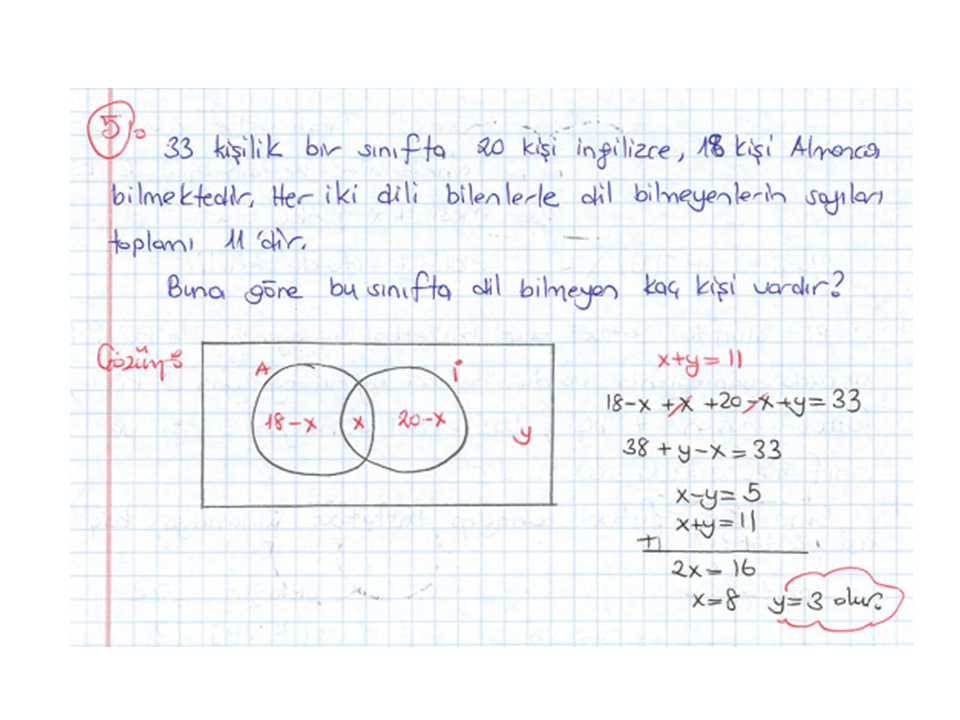 5)
33 kişilik bir sınıfta 20 kişi ingilizce, 18 kişi Almanca
bilmektedir. Her iki dili bilenlerle dil bilmeyenlerin sayıları
toplamı 11'dir.
Buna göre bu sınıfta dil bilmeyen kaç kişi vardır?
Çözüm:
A İ
18-x x 20-x y
x+y=11
18-x+x+20-x+y=33
38+y-x=33
x-y=5
x+y=11
+
2x=16
x=8 y=3 olur.